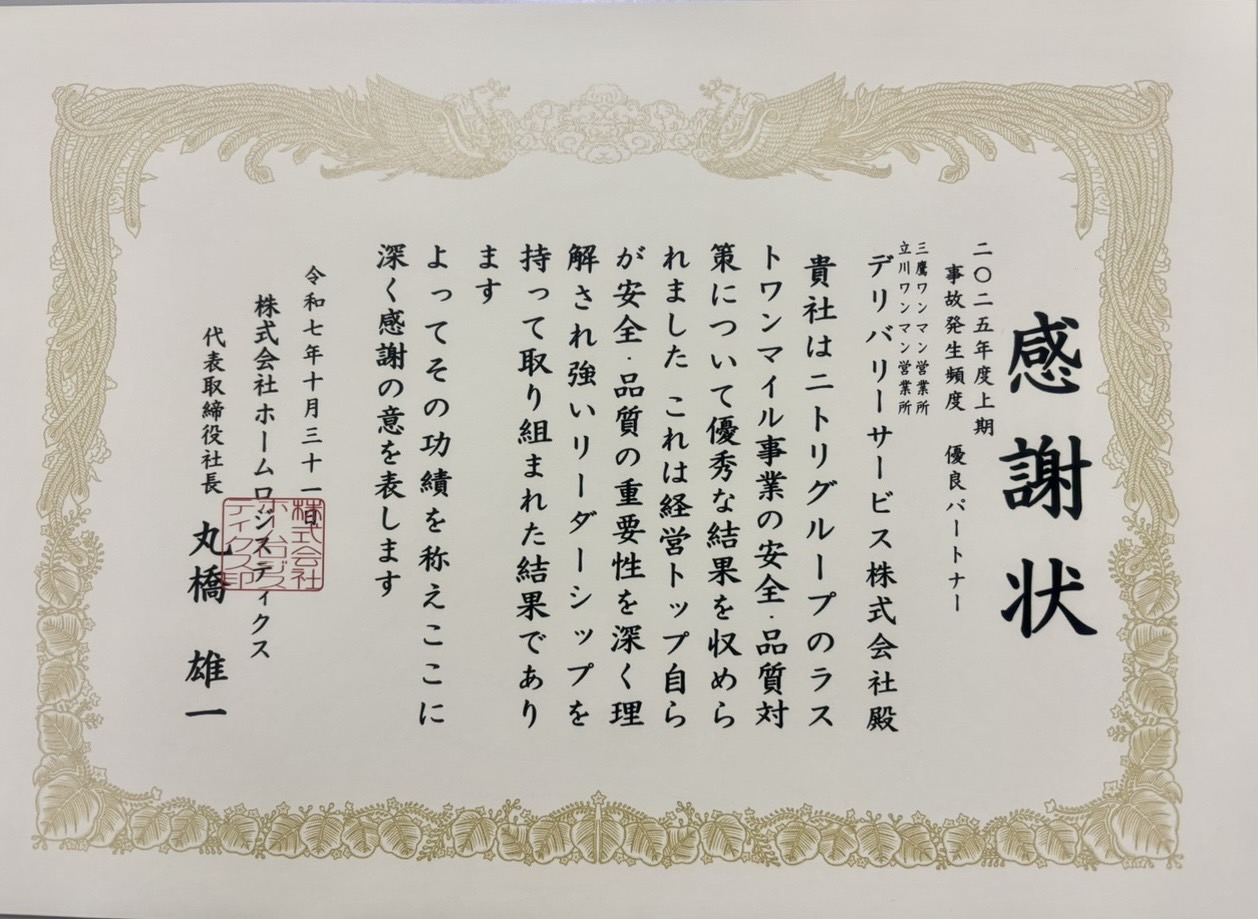 感謝状
二〇二五年度上期
事故発生頻度　優良パートナー
三鷹ワンマン営業所
立川ワンマン営業所
デリバリーサービス株式会社殿
貴社はニトリグループのラス
トワンマイル事業の安全・品質対
策について優秀な結果を収めら
れました これは経営トップ自ら
が安全・品質の重要性を深く理
解され強いリーダーシップを
持って取り組まれた結果であり
ます
よってその功績を称えここに
深く感謝の意を表します
令和七年十月三十一日
株式会社ホームロジスティクス
代表取締役社長　丸橋　雄一
株式会社
ホームロジス
ティクス印